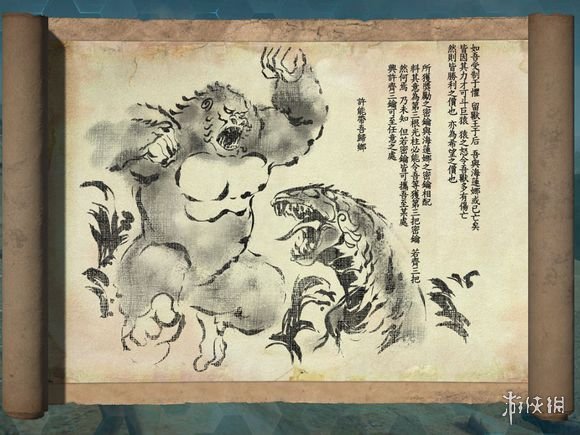 如吾受制于懼 留獸王于后 吾與海蓮娜或已亡矣
皆因其力才可斗巨猿 猿之怒令吾獸多有傷亡
然則皆勝利之價也 亦為希望之價也
所獲獎勵之密鑰與海蓮娜之密鑰相配
料其意為第三根光柱必能令吾等獲第三把密鑰 若齊三把
然何焉 乃未知 但若密鑰皆可攜吾至某處
興許齊三鑰可至任意之處
許能帶吾歸鄉
游侠網